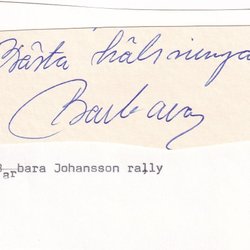 Bästa hälsninga
Barbara
Barbara Johansson rally